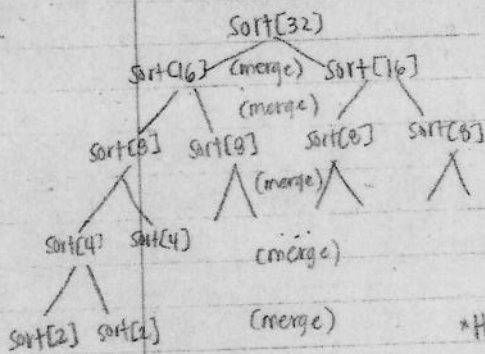 sort[32]
sort[16] (merge) sort[16]
(merge)
sort[8] sort[8] sort[8] sort[8]
(merge)
sort[4] sort[4]
(merge)
sort[2] sort[2] (merge) *H